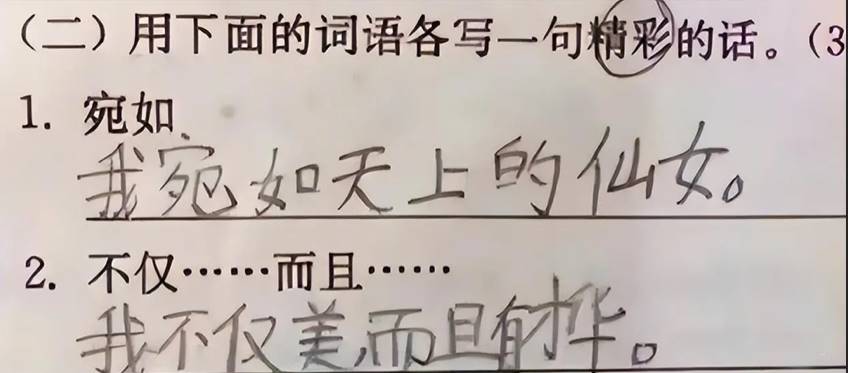 （二）用下面的词语各写一句精彩的话。（3
1. 宛如
我宛如天上的仙女。
2. 不仅……而且……
我不仅美，而且有才华。